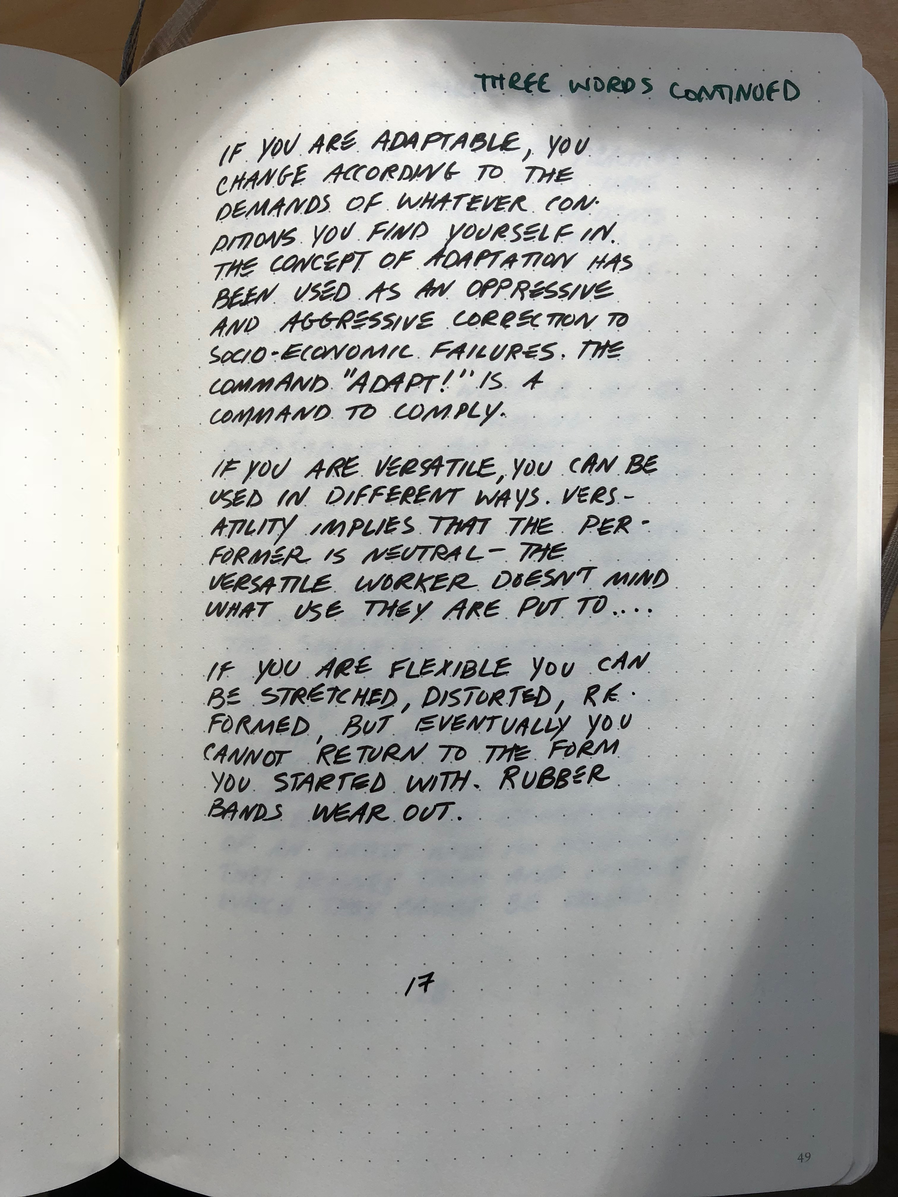 THREE WORDS CONTINUED
IF YOU ARE ADAPTABLE, YOU
CHANGE ACCORDING TO THE
DEMANDS OF WHATEVER CON-
DITIONS YOU FIND YOURSELF IN.
THE CONCEPT OF ADAPTATION HAS
BEEN USED AS AN OPPRESSIVE
AND AGGRESSIVE CORRECTION TO
SOCIO-ECONOMIC FAILURES. THE
COMMAND "ADAPT!" IS A
COMMAND TO COMPLY.
IF YOU ARE VERSATILE, YOU CAN BE
USED IN DIFFERENT WAYS. VERS-
ATILITY IMPLIES THAT THE PER-
FORMER IS NEUTRAL — THE
VERSATILE WORKER DOESN'T MIND
WHAT USE THEY ARE PUT TO....
IF YOU ARE FLEXIBLE YOU CAN
BE STRETCHED, DISTORTED, RE-
FORMED, BUT EVENTUALLY YOU
CANNOT RETURN TO THE FORM
YOU STARTED WITH. RUBBER
BANDS WEAR OUT.
17
49